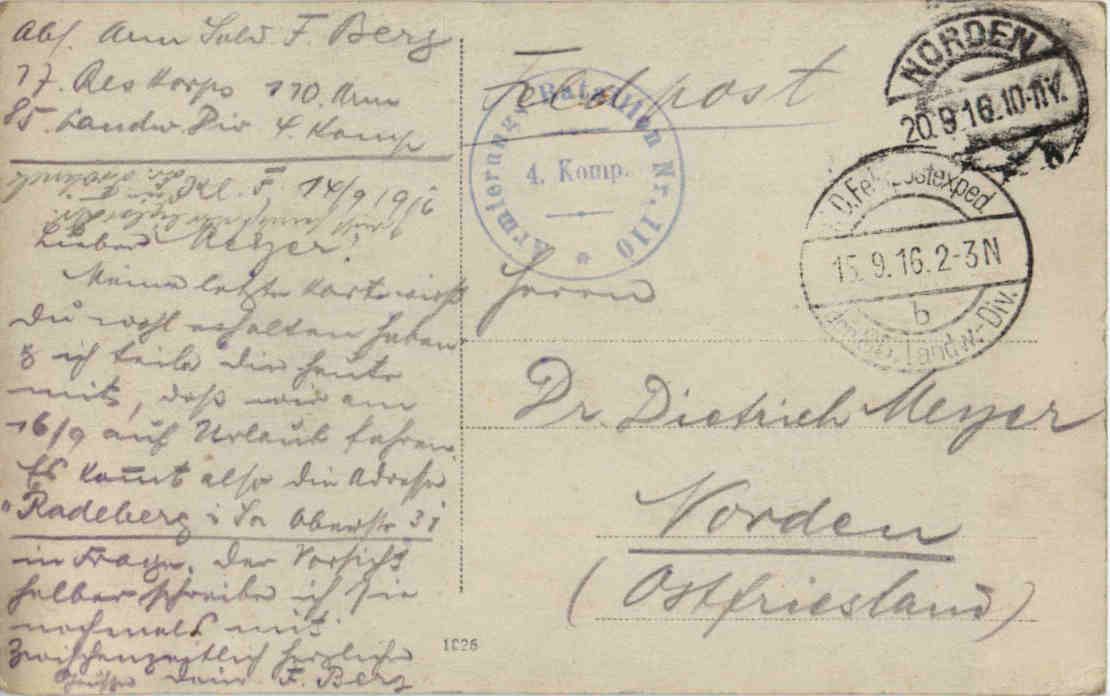 Abs. Arm Sold. F. Berg
17. Res Korps 110. Arm
85. Landw. Div 4. Komp
F. 14/9 1916
Lieber Meyer!
Meine letzte Karte wirst
Du wohl erhalten haben
& ich teile dir heute
mit, daß wir am
16/9 auf Urlaub fahren.
Es kommt also die Adresse
"Radeberg i Sa Oberstr 31
in Frage. Der Vorsicht
halber schreibe ich sie
nochmals mit.
Zwischenzeitlich herzliche
Grüsse Dein F. Berg
Feldpost
Armierungs-Bataillon Nr. 110
4. Komp.
NORDEN
20.9.16.10-11V.
K.D.Feldpostexped.
15.9.16.2-3N
b
der 85. Landw.-Div.
Herrn
Dr. Dietrich Meyer
Norden
(Ostfriesland)
1026